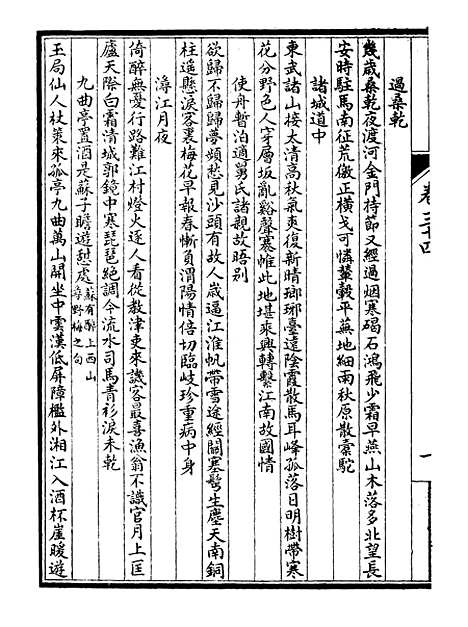 過桑乾
幾歲桑乾夜渡河金門持節又經過烟寒碣石鴻飛少霜早燕山木落多北望長
安時駐馬南征荒徼正橫戈可憐輦轂平蕪地細雨秋原散橐駝
諸城道中
東武諸山接太清高秋氣爽復新晴瑯琊臺遠陰霞散馬耳峰孤落日明樹帶寒
花分野色人穿層坂亂谿聲褰帷此地堪乘興轉繫江南故國情
使舟暫泊適舅氏諸親故晤別
欲歸不歸歸夢頻愁見沙頭有故人歲逼江淮帆帶雪途經關塞髩生塵天南銅
柱遙懸淚客裏梅花早報春慚負渭陽情倍切臨岐珍重病中身
潯江月夜
倚醉無憂行路難江村燈火逐人看從教津吏來譏客最喜漁翁不識官月上匡
廬天際白霜清城郭鏡中寒琵琶絕調今流水司馬青衫淚未乾
九曲亭置酒是蘇子瞻遊憩處蘇有醉上西山尋野梅之句
玉局仙人杖策來孤亭九曲萬山開坐中雲漢低屏障檻外湘江入酒杯崖暖遊
卷三十四
一